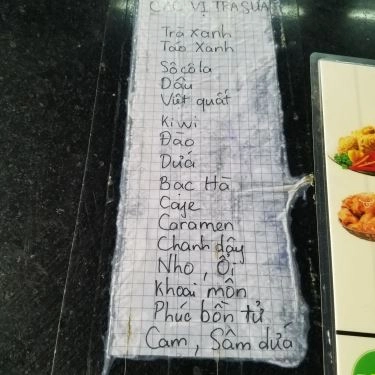 CÁC VỊ TRÀ SỮA
Trà xanh
Táo Xanh
Sôcôla
Dâu
Việt quất
Kiwi
Đào
Dừa
Bạc Hà
Cafe
Caramen
Chanh dây
Nho, Ổi
khoai môn
Phúc bồn tử
Cam, Sâm dứa